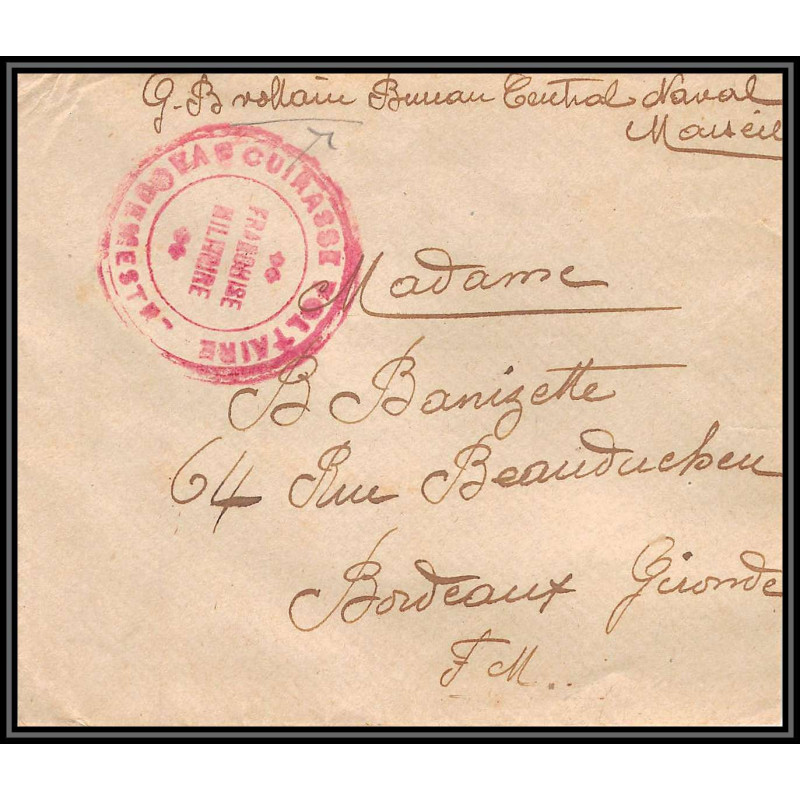 G. B voltaire Bureau Central Naval
Marseil
CUIRASSE VOLTAIRE
FRANCHISE
MILITAIRE
Madame
B Banizette
64 Rue Beauduchen
Bordeaux Gironde
F. M..